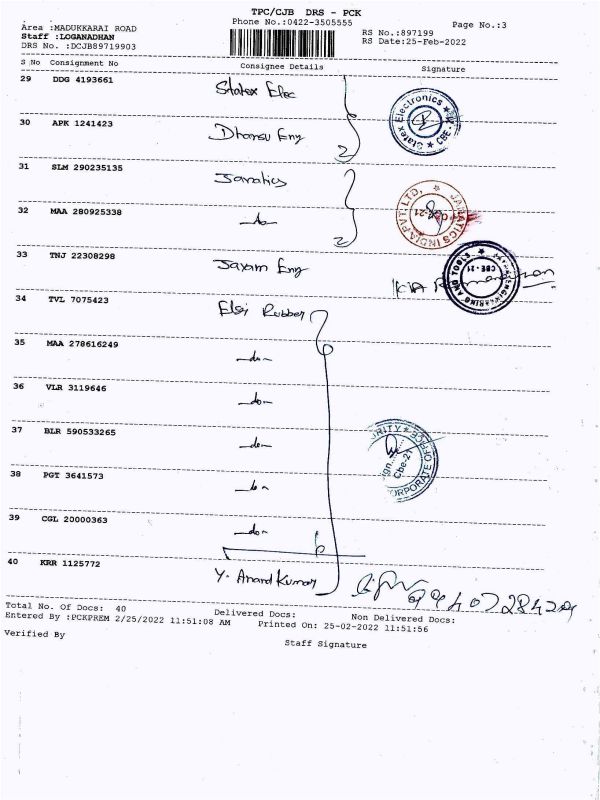 TPC/CJB DRS - PCK
Area :MADUKKARAI ROAD
Phone No.:0422-3505555
Page No.:3
Staff :LOGANADHAN
RS No.:897199
DRS No. :DCJB89719903
RS Date:25-Feb-2022
S No Consignment No Consignee Details Signature
29 DDG 4193661 Statex Elec
Statex Electronics ★ CBE
30 APK 1241423 Dhansu Eng
31 SLM 290235135 Janatics
JANATICS INDIA PVT. LTD. ★ CBE-21
32 MAA 280925338 -do-
33 TNJ 22308298 Jayam Eng
ENGINEERING AND TOOLS ★ CBE - 21
34 TVL 7075423 Elgi Rubber
35 MAA 278616249 -do-
36 VLR 3119646 -do-
37 BLR 590533265 -do-
SECURITY ★ CORPORATE OFFICE Sign Cbe-21
38 PGT 3641573 -do-
39 CGL 20000363 -do-
40 KRR 1125772 Y. Anand Kumar
Total No. Of Docs: 40 Delivered Docs: Non Delivered Docs:
Entered By :PCKPREM 2/25/2022 11:51:08 AM Printed On: 25-02-2022 11:51:56
Verified By
Staff Signature